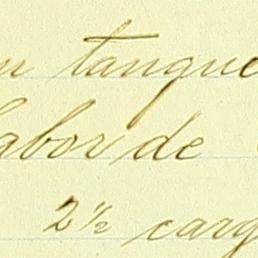 un tanque
labor de
2 ½ carg